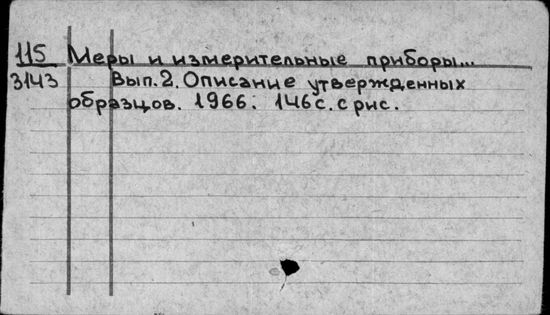 115 Меры и измерительные приборы...
3143 Вып. 2. Описание утвержденных
образцов. 1966. 146 с. с рис.